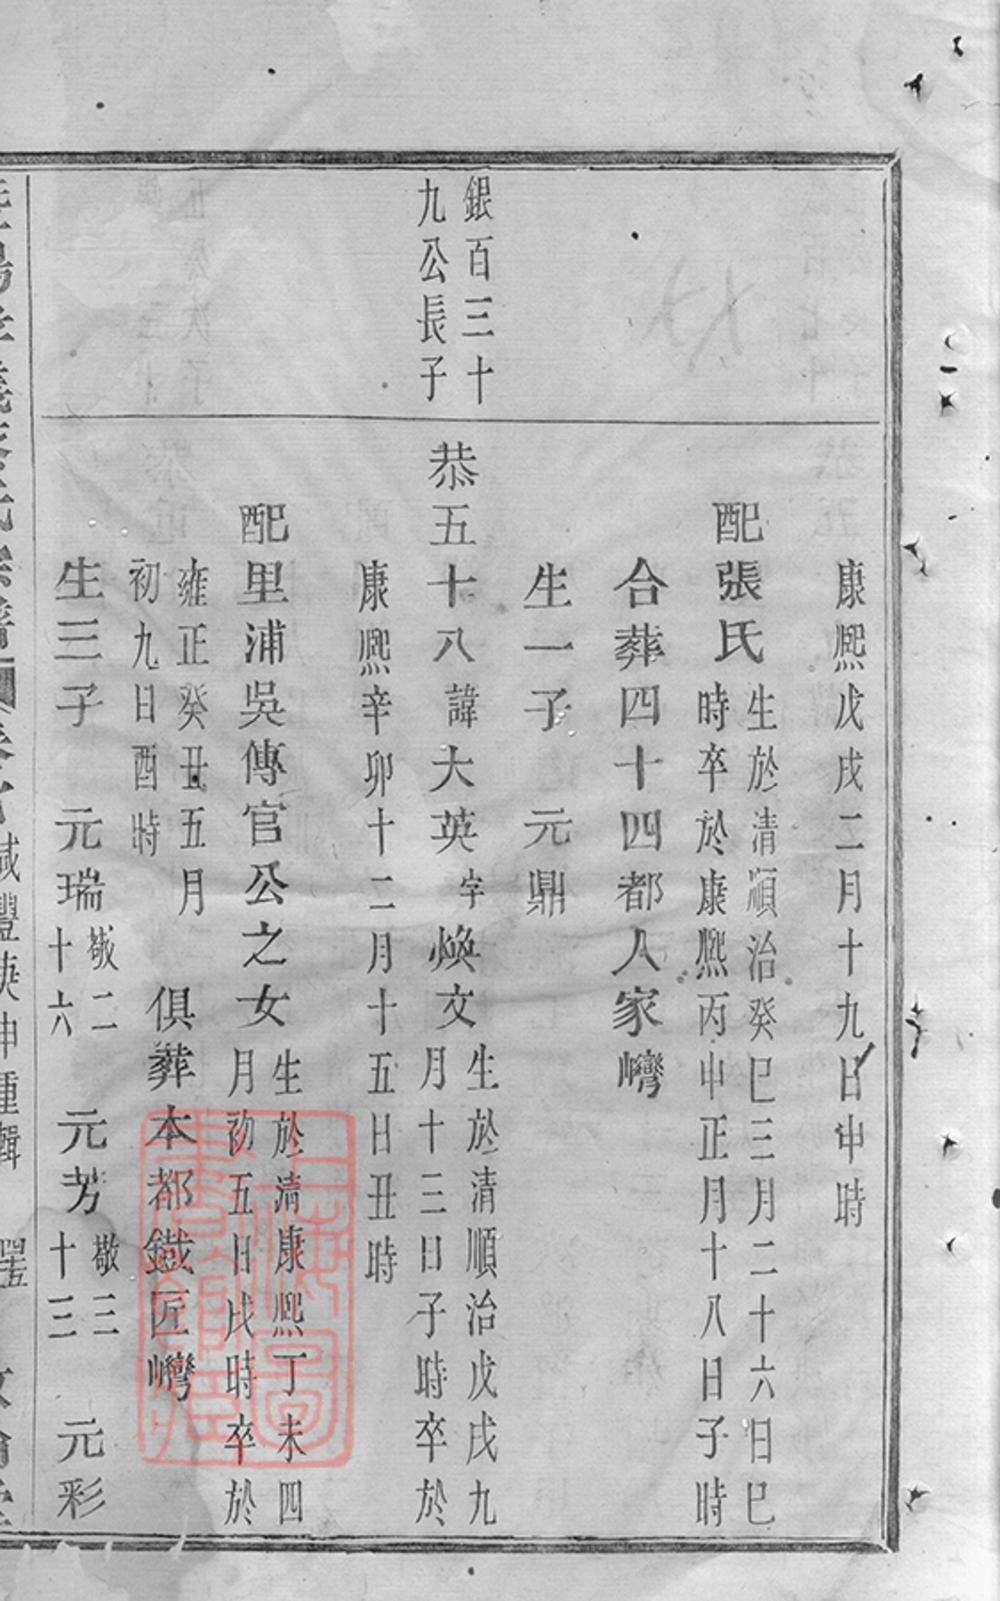 康熙戊戌二月十九日申時
配張氏
生於清順治癸巳三月二十六日巳
時卒於康熙丙申正月十八日子時
合葬四十四都人家巒
生一子　元鼎
銀百三十
九公長子
恭五十八諱大英字煥文
生於清順治戊戌九
月十三日子時卒於
康熙辛卯十二月十五日丑時
配里浦吳傳官公之女
生於清康熙丁未四
月初五日戌時卒於
雍正癸丑五月
初九日酉時
俱葬本都鐵匠巒
生三子　元瑞
敬二
十六
元芳
敬三
十三
元彩
咸豐庚申重輯
上海圖書館藏